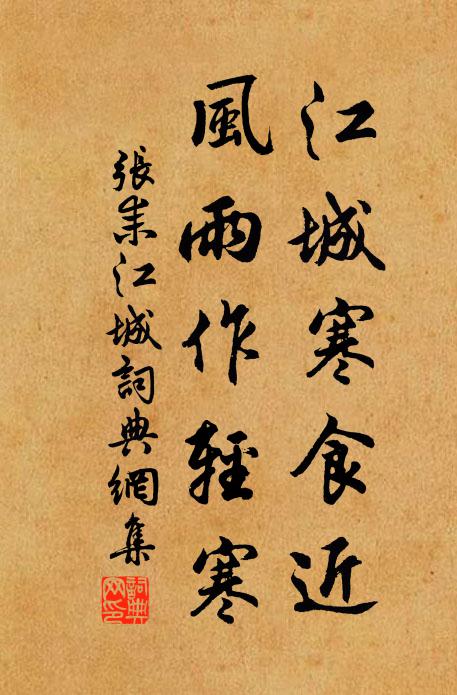 江城寒食近
風雨作輕寒
張耒江城詞典網集
詞典
网印